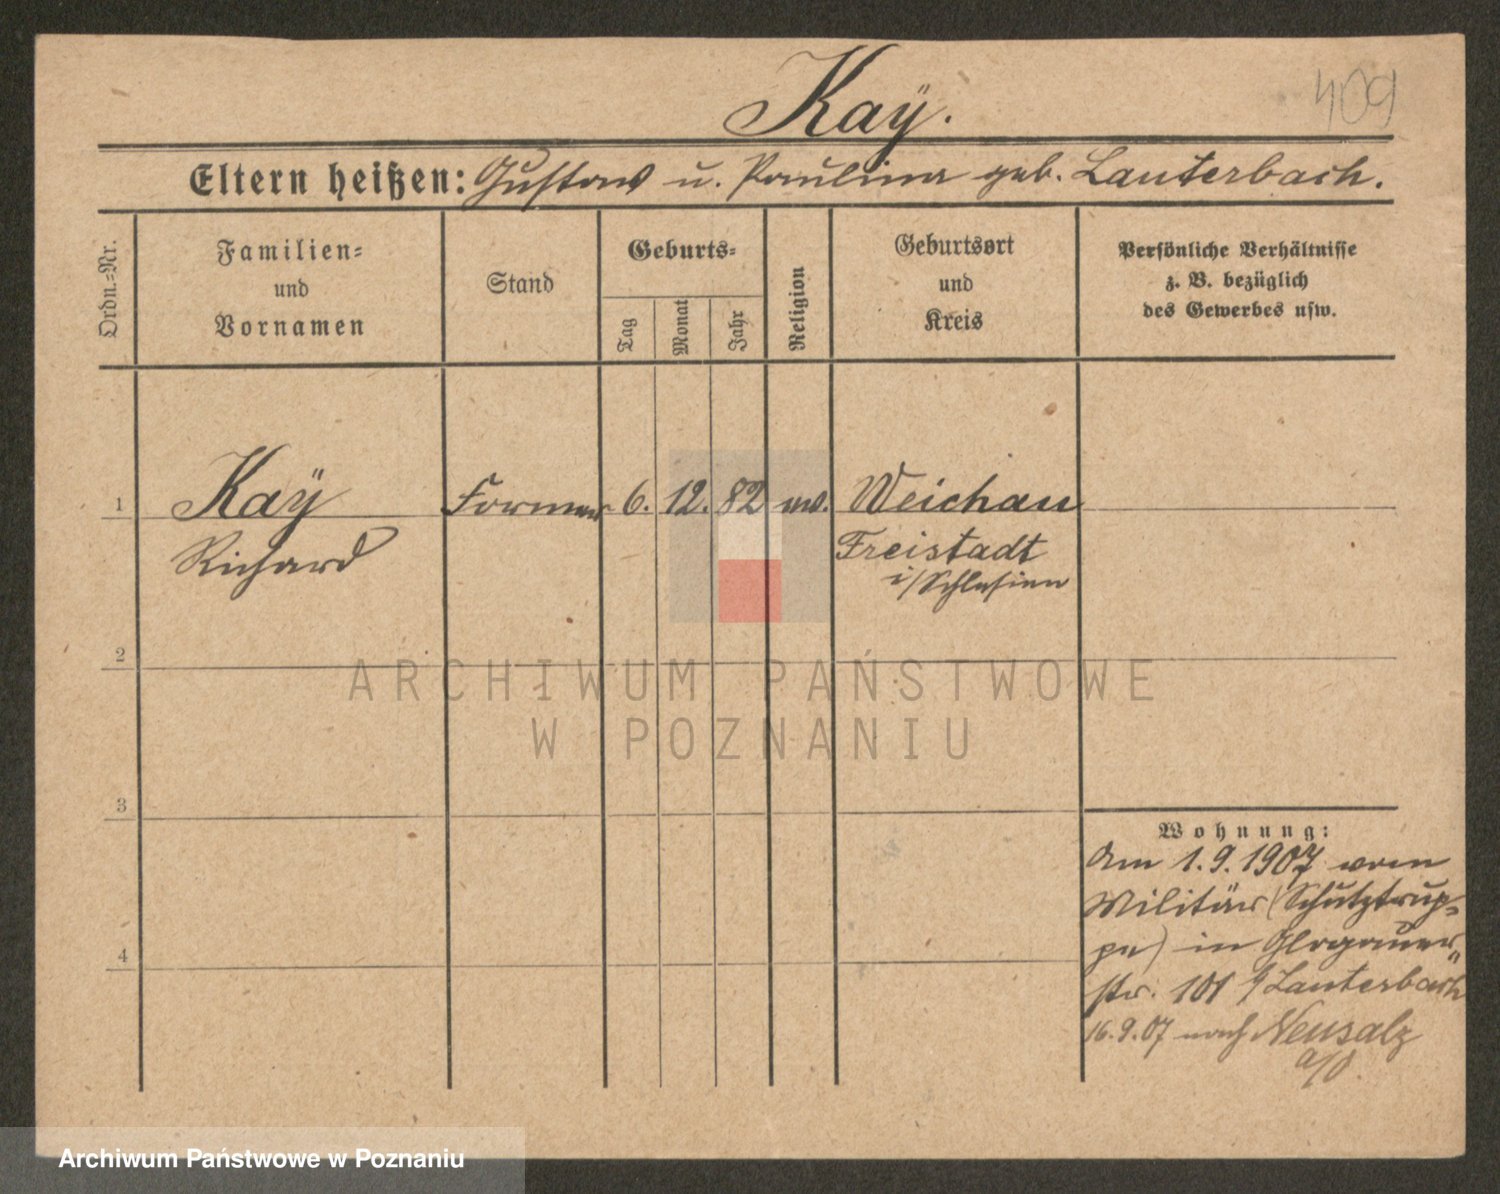 Kaÿ.
409
Eltern heißen: Gustav u. Paulina geb. Lauterbach.
Ordn.-Nr.
Familien-
und
Vornamen
Stand
Geburts-
Tag
Monat
Jahr
Religion
Geburtsort
und
Kreis
Persönliche Verhältnisse
z. B. bezüglich
des Gewerbes usw.
1 Kaÿ Former 6. 12. 82 ev. Weichau
Richard Freistadt
i/Schlesien
2
ARCHIWUM PAŃSTWOWE
W POZNANIU
3
Wohnung:
Am 1.9.1907 vom
Militär (Schutztrup-
pe) in Glogauer-
str. 101 b/Lauterbach
4
16.9.07 nach Neusalz
a/O.
Archiwum Państwowe w Poznaniu